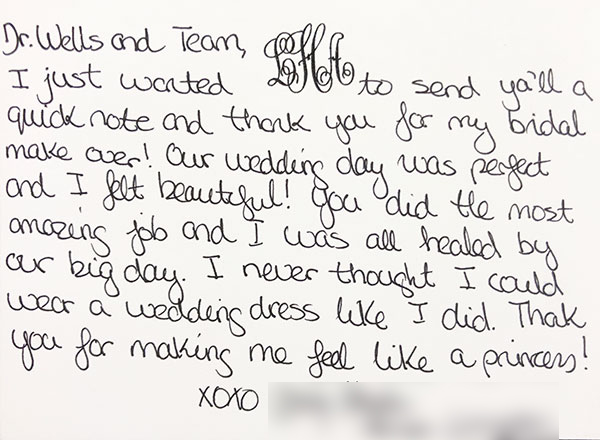 Dr. Wells and Team,
I just wanted to send ya'll a
quick note and thank you for my bridal
make over! Our wedding day was perfect
and I felt beautiful! You did the most
amazing job and I was all healed by
our big day. I never thought I could
wear a wedding dress like I did. Thank
you for making me feel like a princess!
XOXO